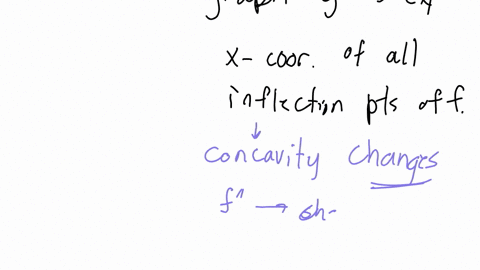 x- coor. of all
inflection pts of f.
concavity changes
f" → sh-